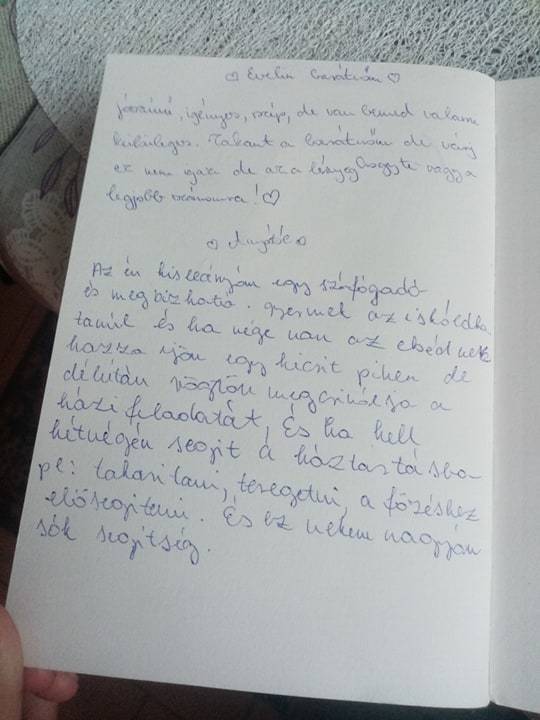 ♡ Evelin barátnőm ♡
jószívű, igényes, szép, de van benned valami
különleges. Takant a barátnőm de várj
ez nem igaz de az a lényeg hogy te vagy a
legjobb számomra! ♡
♡ Anyáé ♡
Az én kisleányom egy szófogadó
és megbizható. gyermek az iskoldba
tanúl és ha vége van az ebédnek
hazza jön egy kicsit pihen de
délután rögtön megcsinálja a
házi feladatát, És ha kell
hétvégén segit a háztartásba
pl: takaritani, teregetni, a főzéshez
elősegiteni. És ez nekem nagyon
sók segitség.